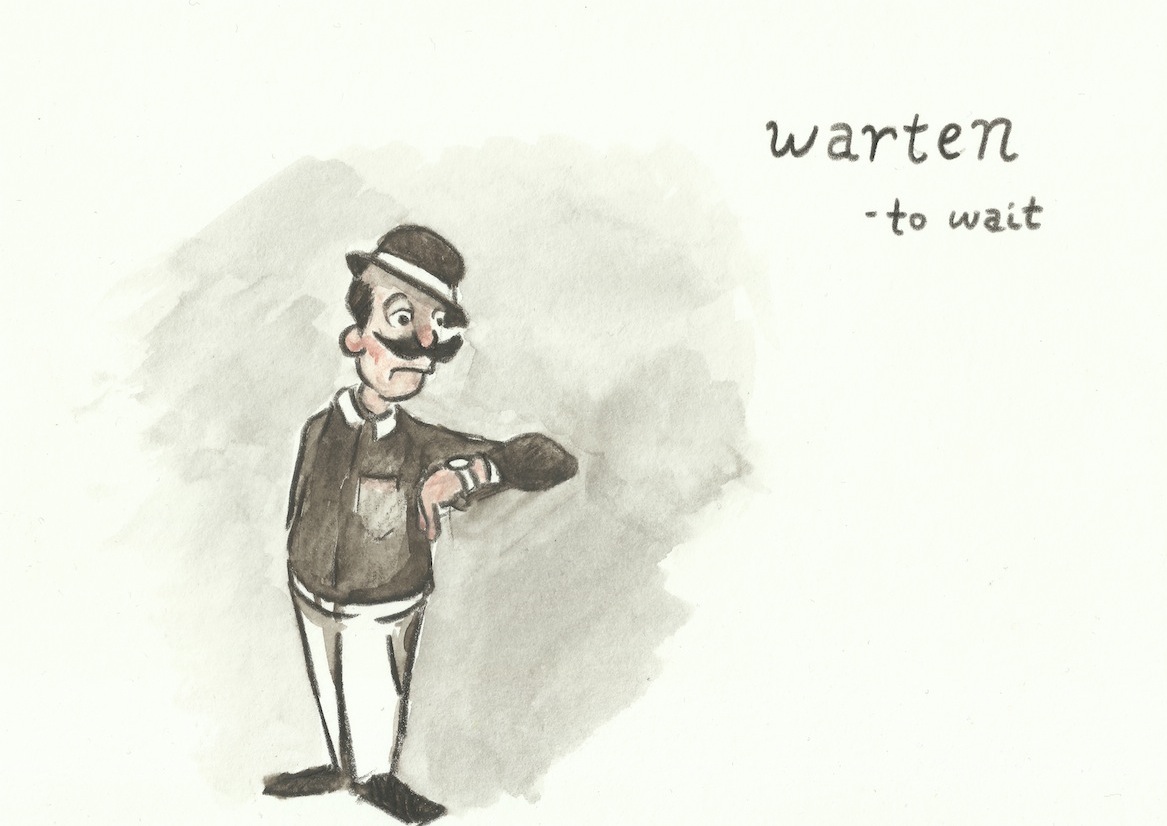 warten
-to wait